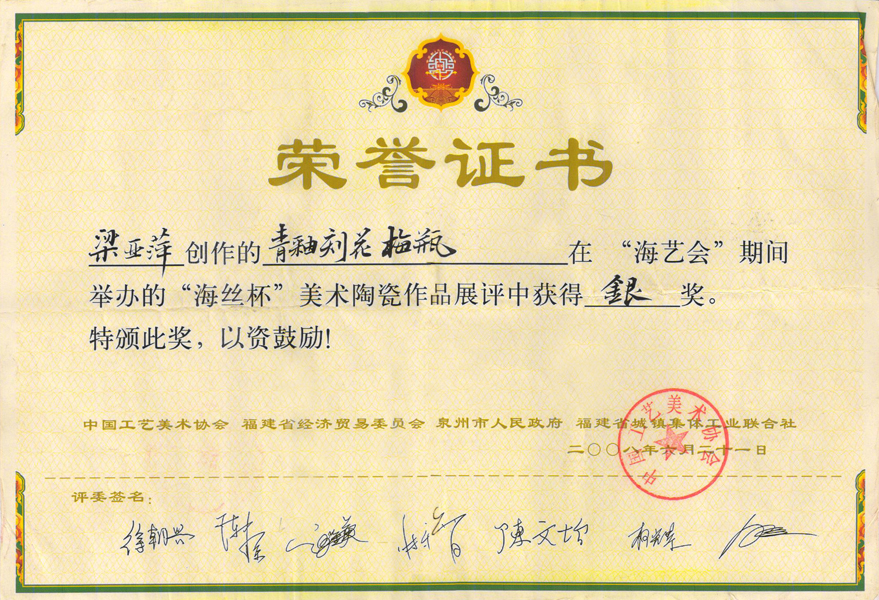 荣誉证书
梁亚萍创作的青釉刻花梅瓶在“海艺会”期间
举办的“海丝杯”美术陶瓷作品展评中获得銀奖。
特颁此奖，以资鼓励!
中国工艺美术协会 福建省经济贸易委员会 泉州市人民政府 福建省城镇集体工业联合社
二〇〇八年六月二十一日
中国工艺美术协会
评委签名：
徐朝兴 陳文增